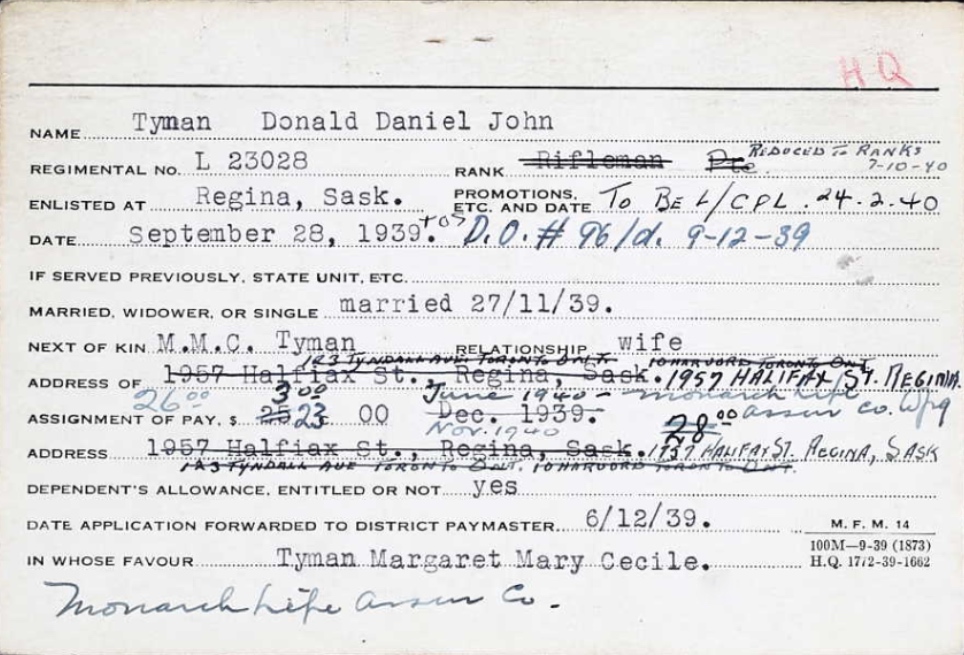 H Q
NAME Tyman Donald Daniel John
REGIMENTAL NO. L 23028 RANK Rifleman Pte REDUCED TO RANKS 7-10-40
ENLISTED AT Regina, Sask. PROMOTIONS, ETC. AND DATE TO BE L/CPL. 24.2.40
DATE September 28, 1939. TOS D.O. # 96/d. 9-12-39
IF SERVED PREVIOUSLY, STATE UNIT, ETC.
MARRIED, WIDOWER, OR SINGLE married 27/11/39.
NEXT OF KIN M.M.C. Tyman RELATIONSHIP wife
123 TYNDALL AVE TORONTO ONT. 10 HARVORD TORONTO ONT.
ADDRESS OF 1957 Halfiax St., Regina, Sask. 1957 HALIFAX ST. REGINA.
26 00 3 00 June 1940 - monarch life
ASSIGNMENT OF PAY, $ 25 23 00 Dec. 1939. 28 00 assur co. Wpg
Nov. 1940
ADDRESS 1957 Halfiax St., Regina, Sask. 1957 HALIFAX ST. REGINA, SASK
123 TYNDALL AVE TORONTO ONT. 10 HARVORD TORONTO ONT.
DEPENDENT'S ALLOWANCE, ENTITLED OR NOT yes
DATE APPLICATION FORWARDED TO DISTRICT PAYMASTER 6/12/39.
M. F. M. 14
100M—9-39 (1873)
H.Q. 1772-39-1662
IN WHOSE FAVOUR Tyman Margaret Mary Cecile.
Monarch Life Assur Co.